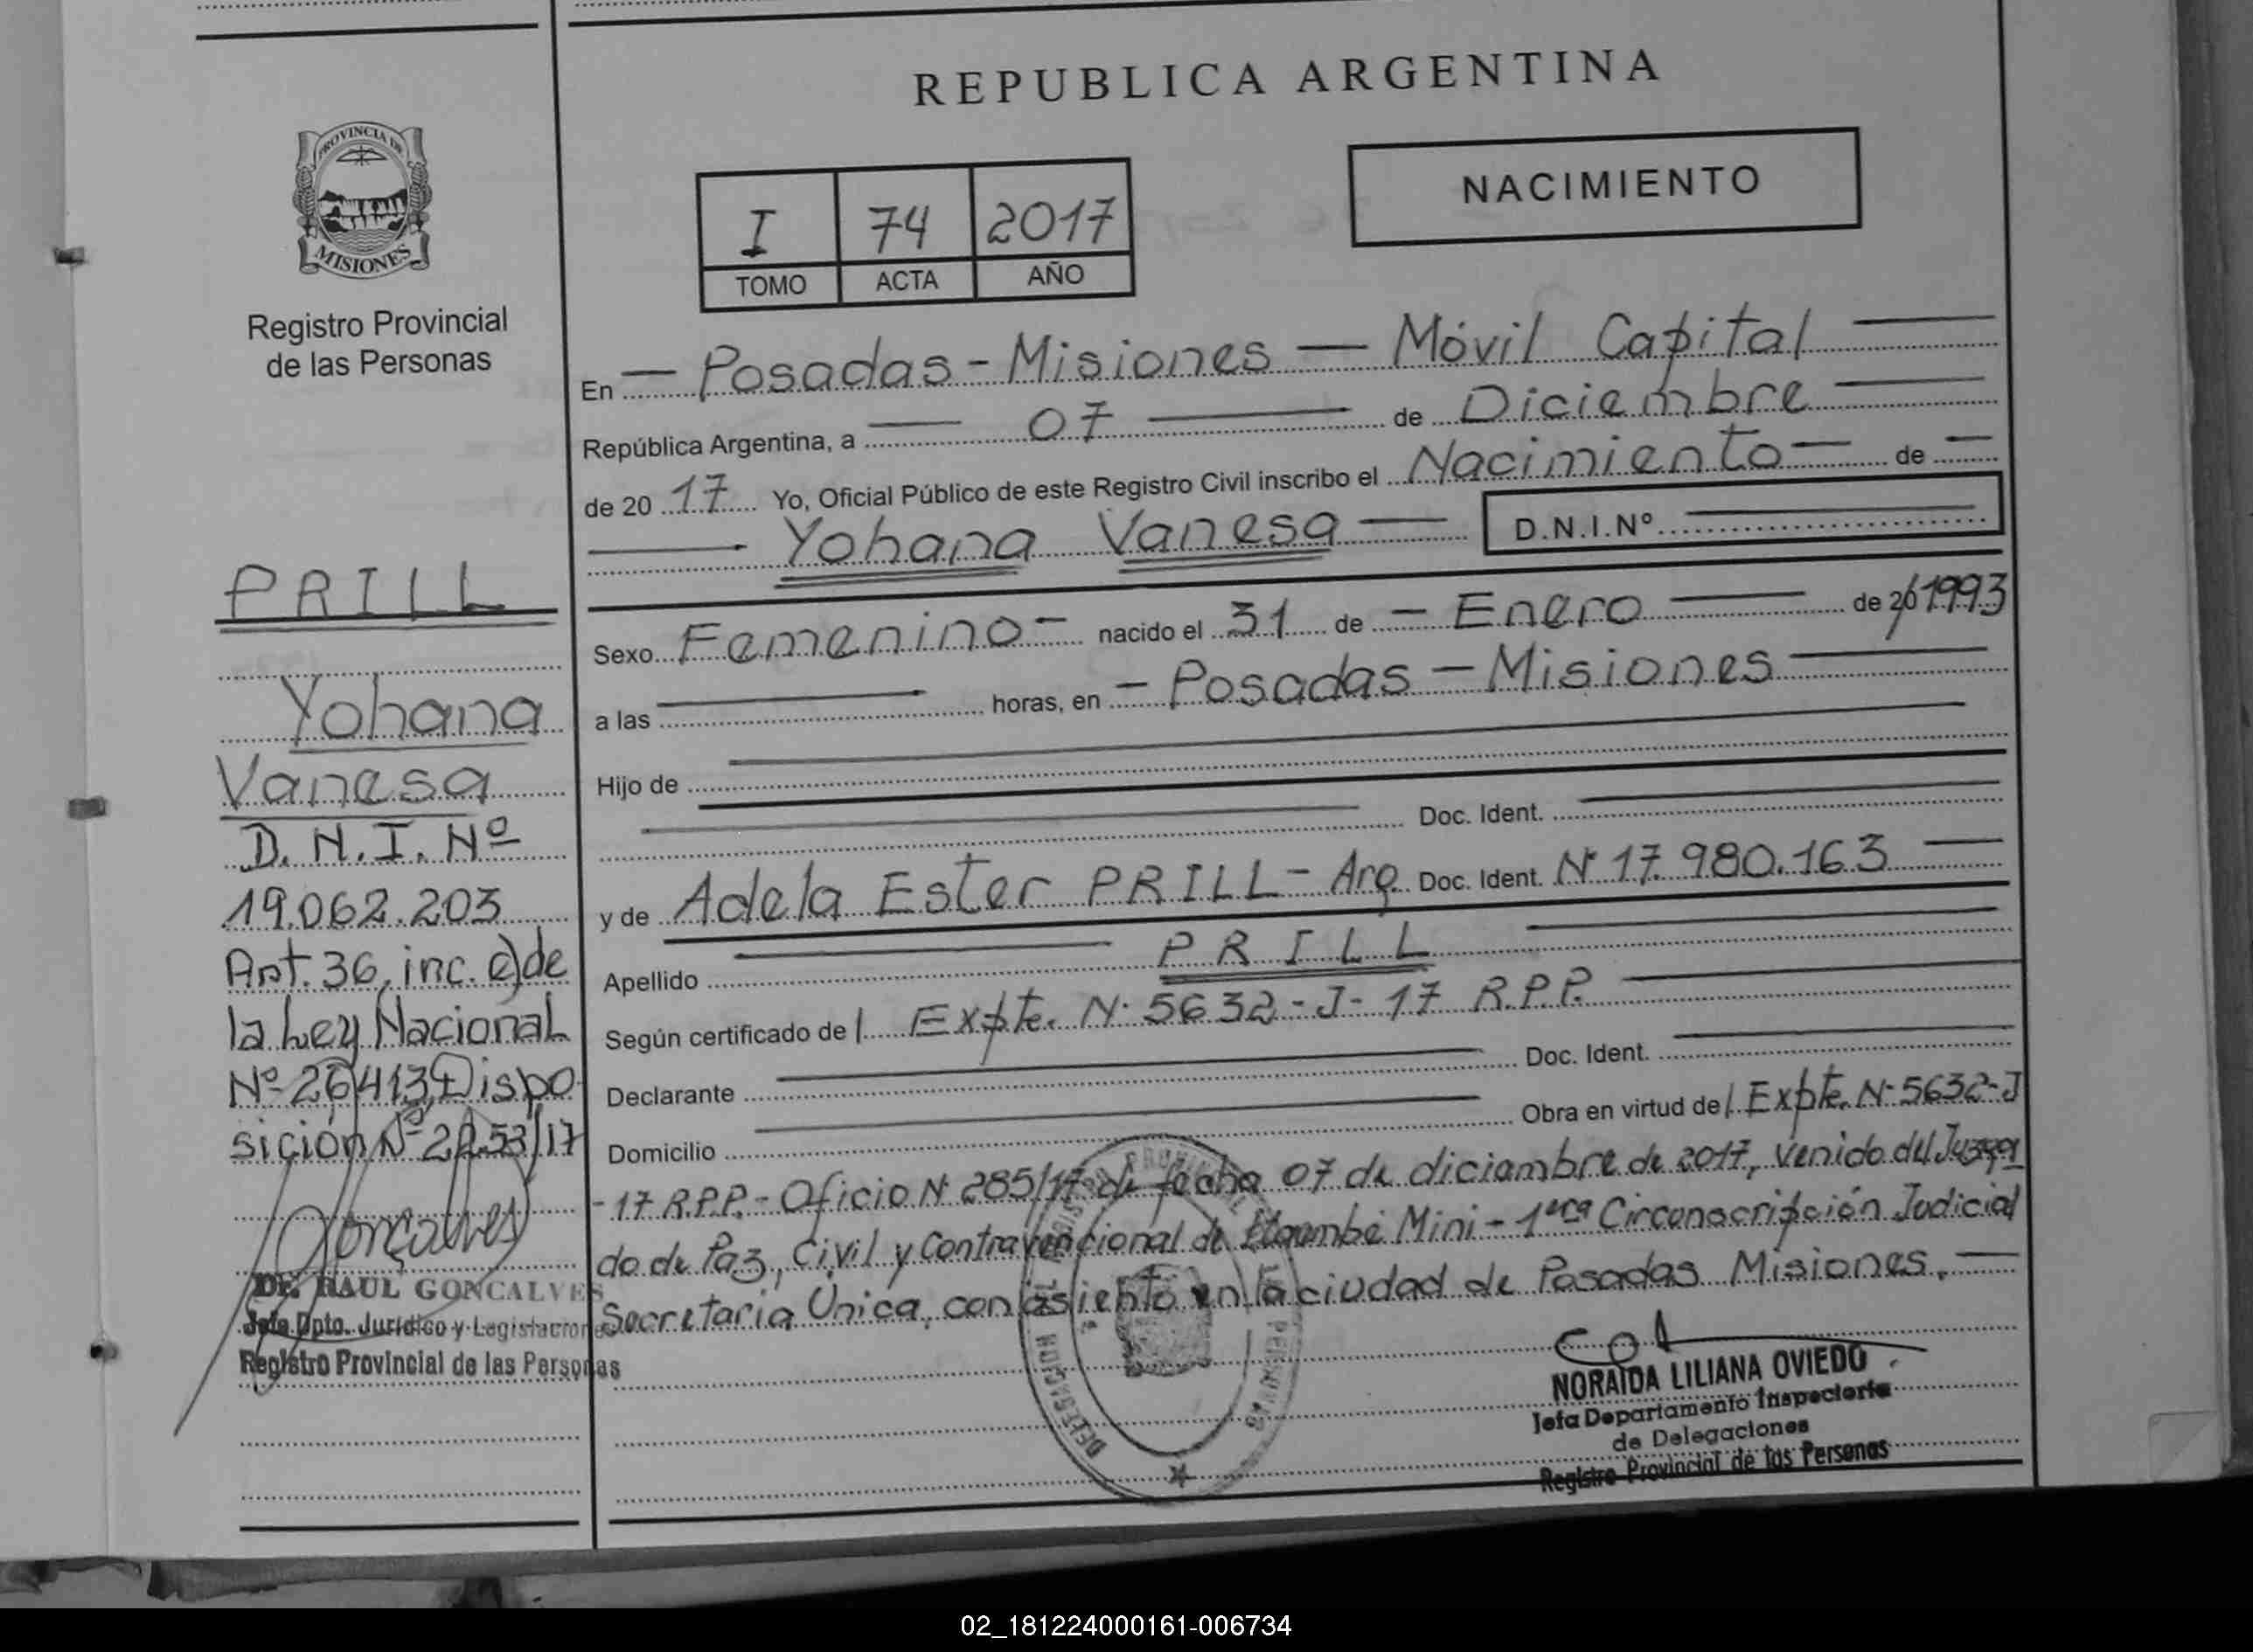 REPUBLICA ARGENTINA
PROVINCIA DE
MISIONES
Registro Provincial
de las Personas
NACIMIENTO
I 74 2017
TOMO ACTA AÑO
En Posadas - Misiones - Móvil Capital
República Argentina, a 07 de Diciembre
de 20 17 Yo, Oficial Público de este Registro Civil inscribo el Nacimiento de
Yohana Vanesa D.N.I.Nº
Sexo Femenino nacido el 31 de Enero de 20/1993
a las horas, en Posadas - Misiones
Hijo de
Doc. Ident.
y de Adela Ester PRILL - Arg. Doc. Ident. Nº 17.980.163
Apellido PRILL
Según certificado de / Expte. Nº 5632-J-17 R.P.P.
Declarante Doc. Ident.
Domicilio Obra en virtud de / Expte. Nº 5632-J
-17 R.P.P. - Oficio Nº 285/17 de fecha 07 de diciembre de 2017, venido del Juzga
do de Paz, Civil y Contravencional de Itaembé Mini - 1era Circunscripción Judicial
Secretaria Única, con asiento en la ciudad de Posadas Misiones.
NORAIDA LILIANA OVIEDO
Jefa Departamento Inspectoría
de Delegaciones
Registro Provincial de las Personas
PRILL
Yohana
Vanesa
D.N.I. Nº
19.062.203
Art. 36, inc. c) de
la Ley Nacional
Nº 26413, Dispo
sición Nº 2253/17
Goncalves
Dr. RAUL GONCALVES
Jefe Dpto. Jurídico y Legislacion
Registro Provincial de las Personas
02_181224000161-006734